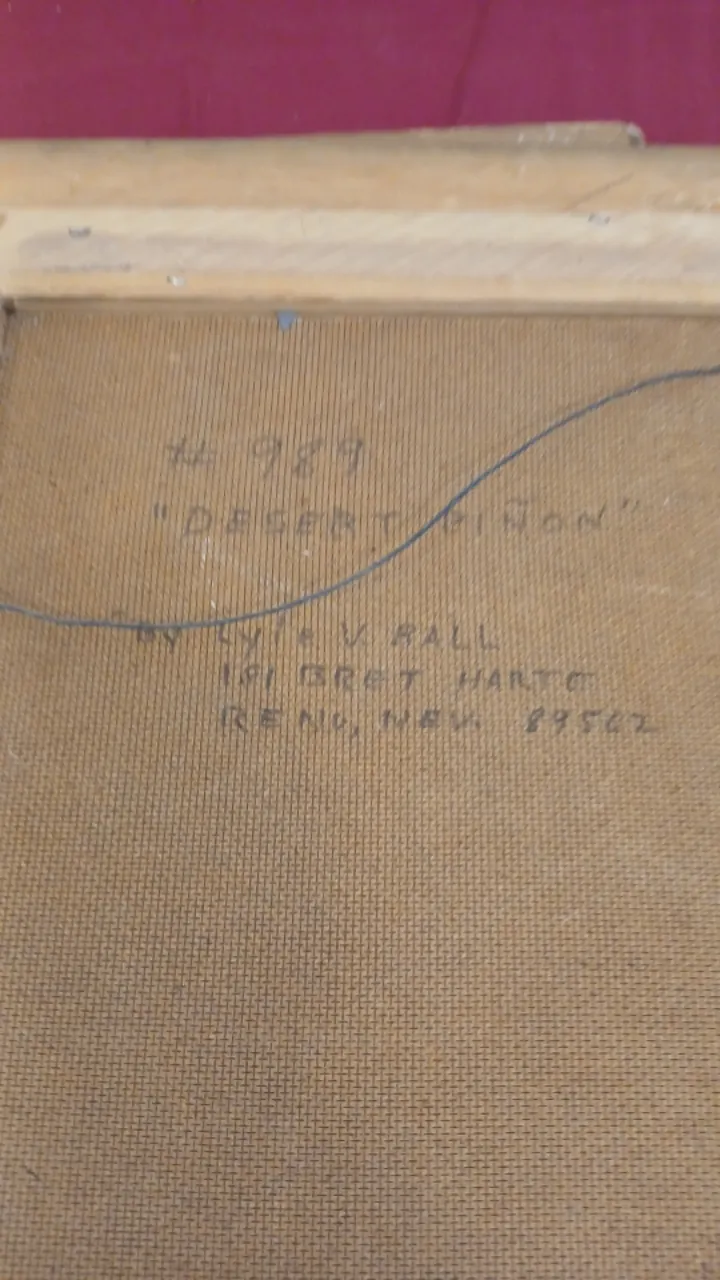 # 989
"DESERT PIÑON"
by Lyle V. BALL
181 BRET HARTE
RENO, NEV. 89502